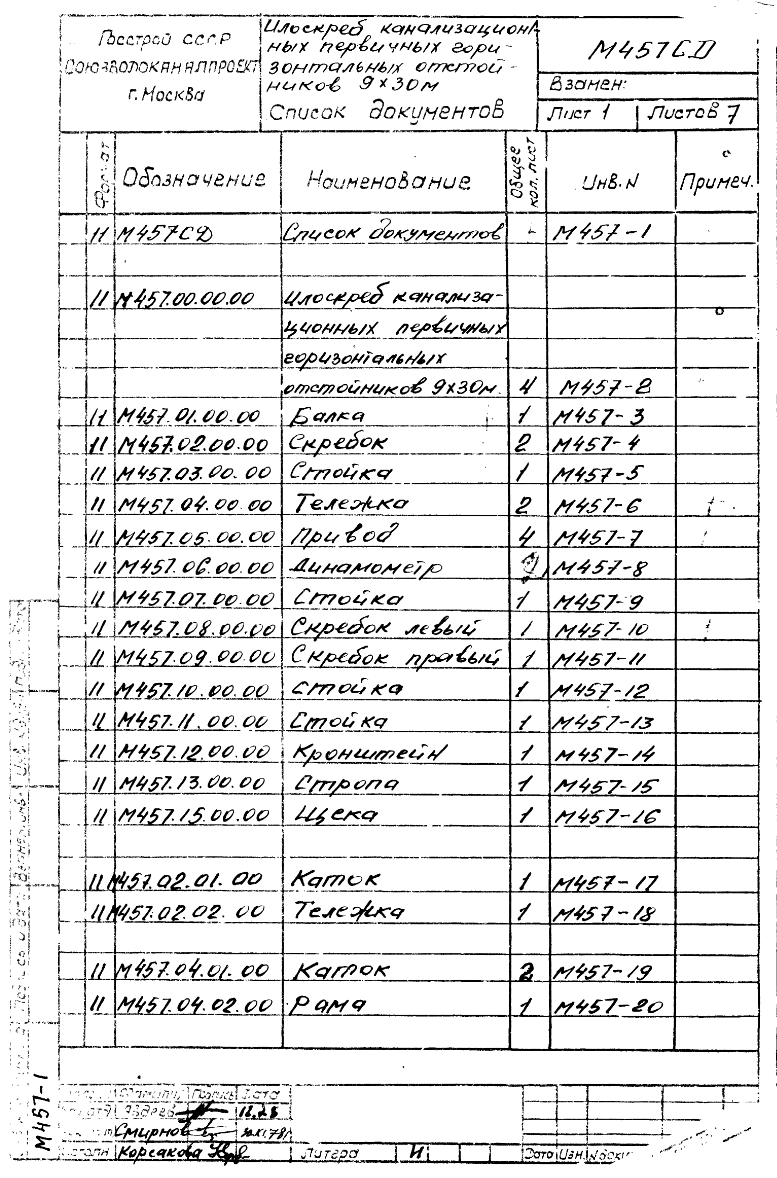 Госстрой СССР
СОЮЗВОДОКАНАЛПРОЕКТ
г. Москва
Илоскреб канализацион-
ных первичных гори-
зонтальных отстой-
ников 9×30м
Список документов
М457СД
Взамен:
Лист 1 Листов 7
Формат Обозначение Наименование Общее кол. лист Инв. N Примеч.
11 М457СД Список документов - М457-1
11 М457.00.00.00 Илоскреб канализа-
ционных первичных
горизонтальных
отстойников 9×30м. 4 М457-2
11 М457.01.00.00 Балка 1 М457-3
11 М457.02.00.00 Скребок 2 М457-4
11 М457.03.00.00 Стойка 1 М457-5
11 М457.04.00.00 Тележка 2 М457-6
11 М457.05.00.00 Привод 4 М457-7
11 М457.06.00.00 Динамометр М457-8
11 М457.07.00.00 Стойка 1 М457-9
11 М457.08.00.00 Скребок левый 1 М457-10
11 М457.09.00.00 Скребок правый 1 М457-11
11 М457.10.00.00 Стойка 1 М457-12
11 М457.11.00.00 Стойка 1 М457-13
11 М457.12.00.00 Кронштейн 1 М457-14
11 М457.13.00.00 Стропа 1 М457-15
11 М457.15.00.00 Щека 1 М457-16
11 М457.02.01.00 Каток 1 М457-17
11 М457.02.02.00 Тележка 1 М457-18
11 М457.04.01.00 Каток 2 М457-19
11 М457.04.02.00 Рама 1 М457-20
Подпись и дата Взамен инв.
М457-1
Дата
Авдеев
Смирнов
Корсакова
Литера И
Дата Изм.